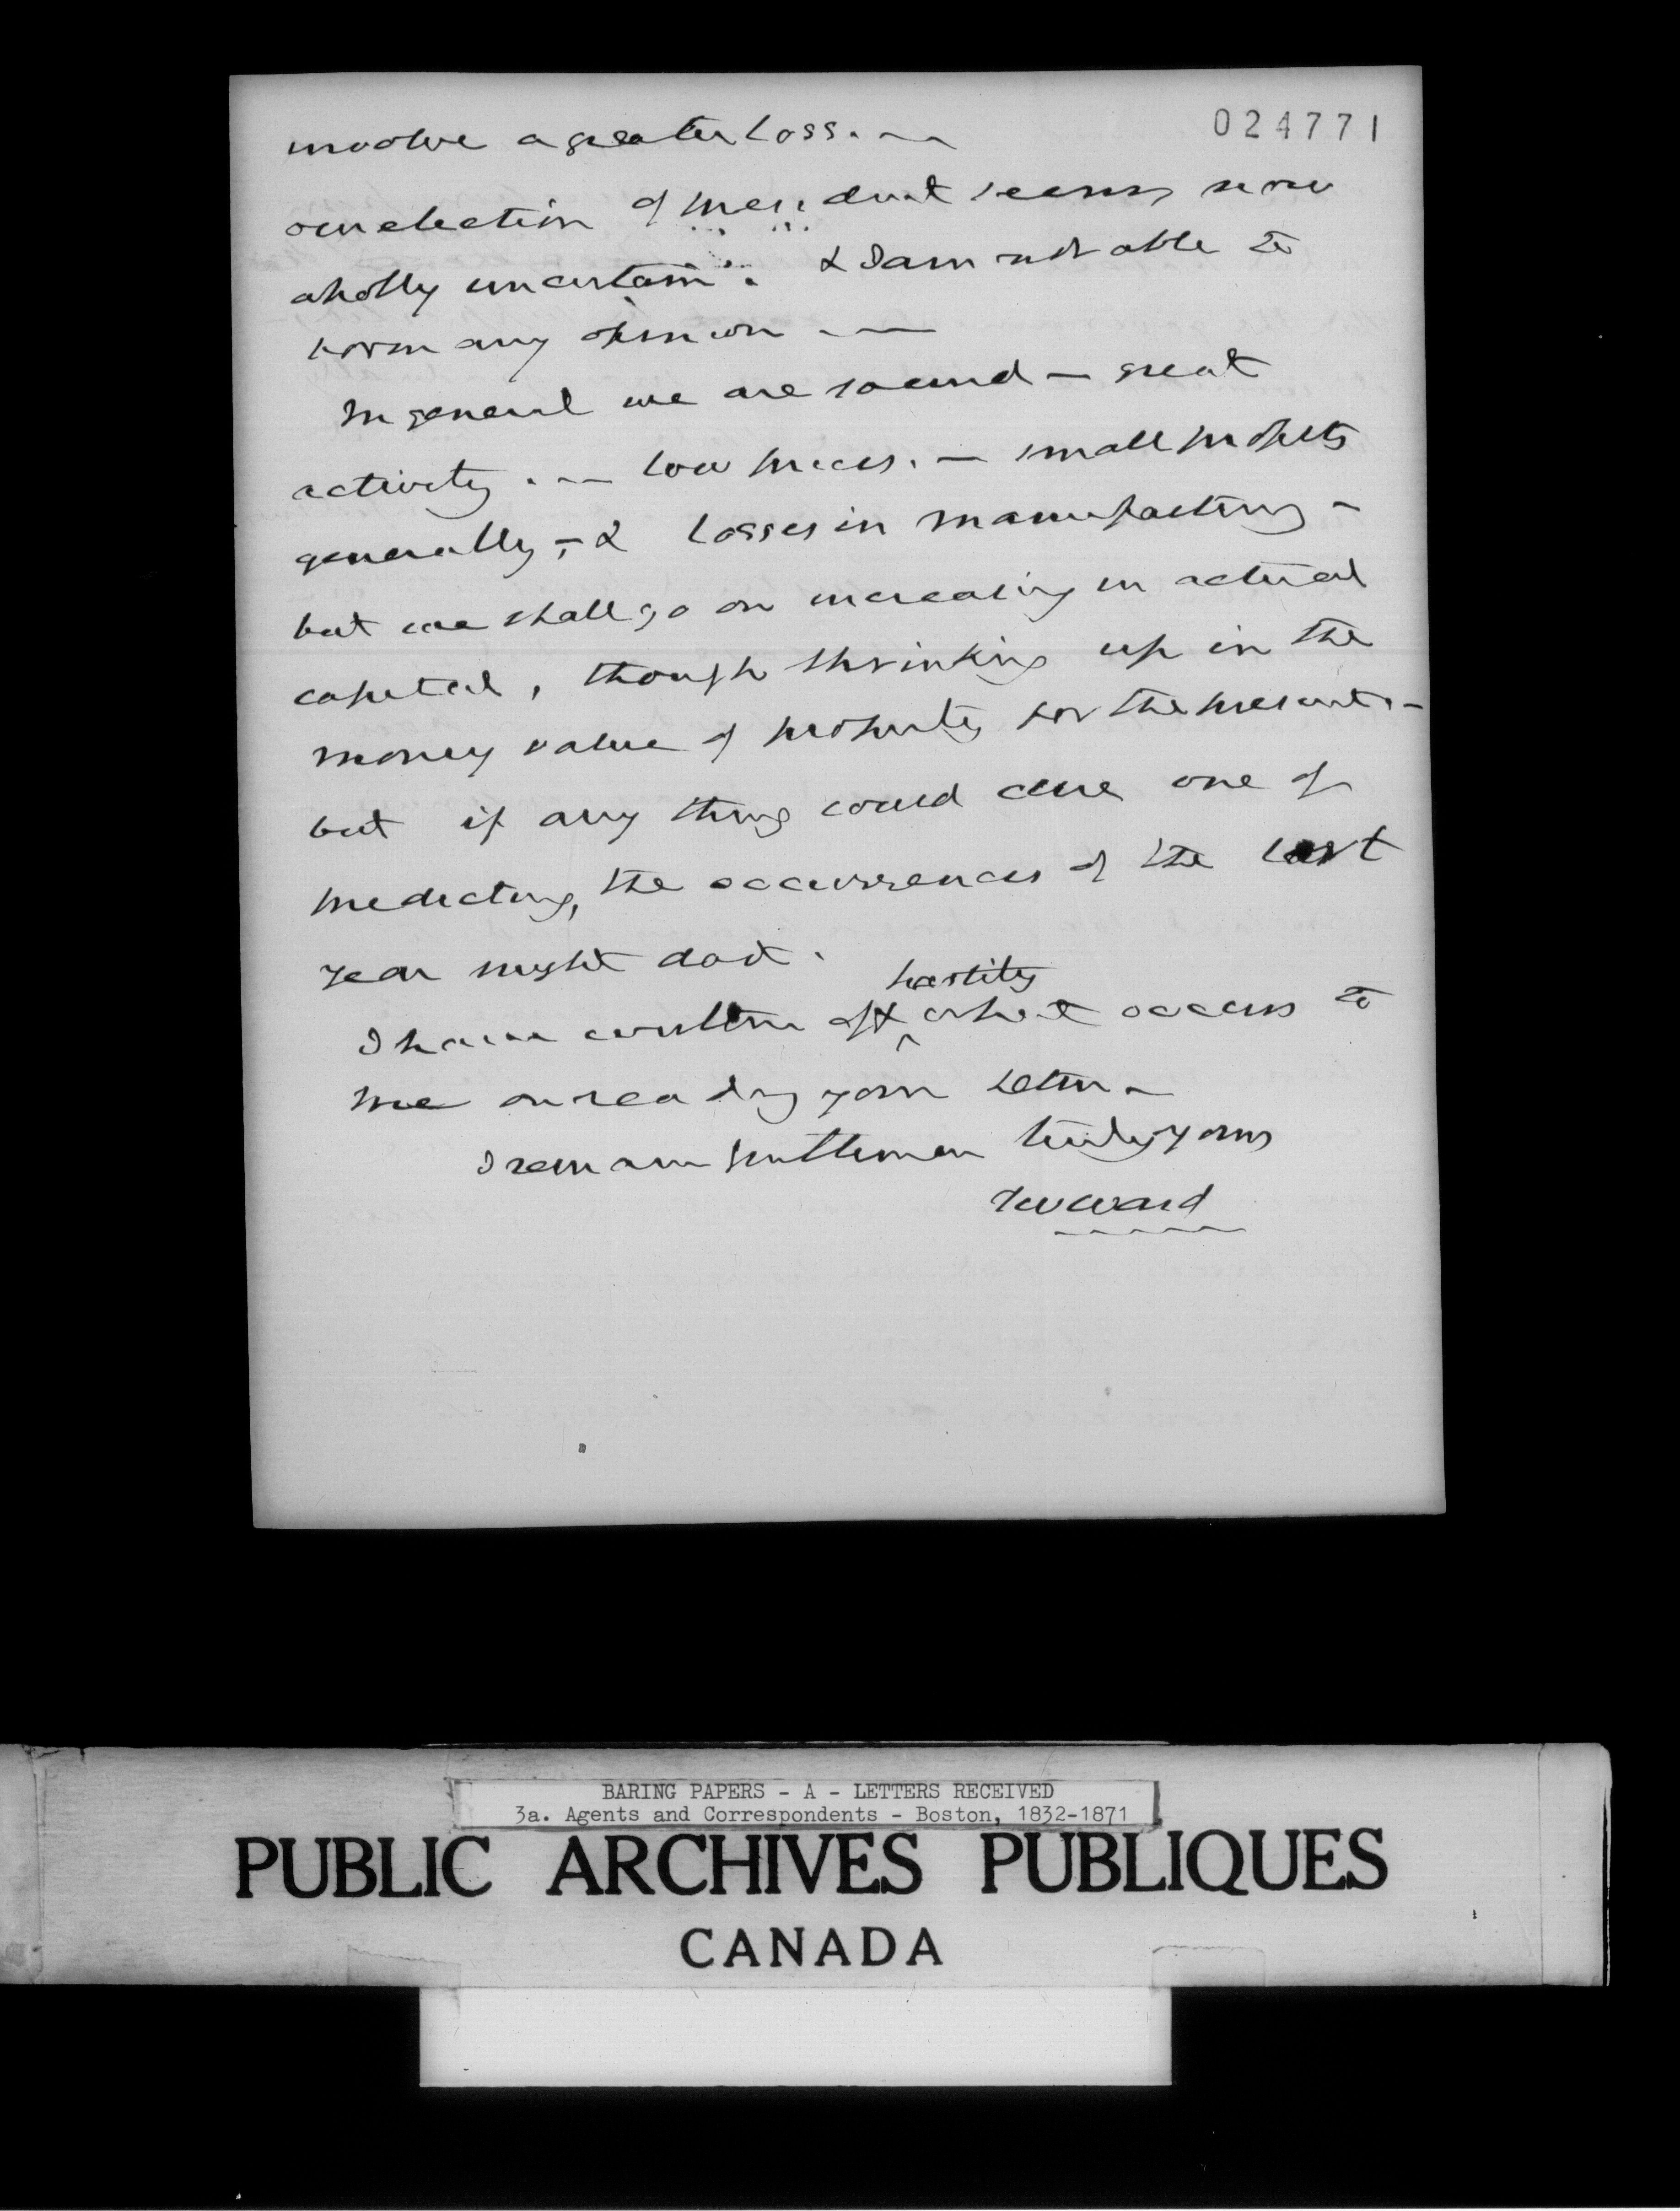 024771
involve a greater loss. —
our election of President seems now
wholly uncertain. & I am not able to
form any opinion. —
In general we are sound — great
activity. — low prices. — small profits
generally, — & losses in manufacturing —
but we shall go on increasing in actual
capital, though shrinking up in the
money value of property for the present. —
but if any thing could cure one of
predicting, the occurrences of the last
year might do it.
hastily
I have written off ^ what occurs to
me on reading your letter —
I remain Gentlemen truly yours
TW Ward
BARING PAPERS - A - LETTERS RECEIVED
3a. Agents and Correspondents - Boston, 1832-1871
PUBLIC ARCHIVES PUBLIQUES
CANADA